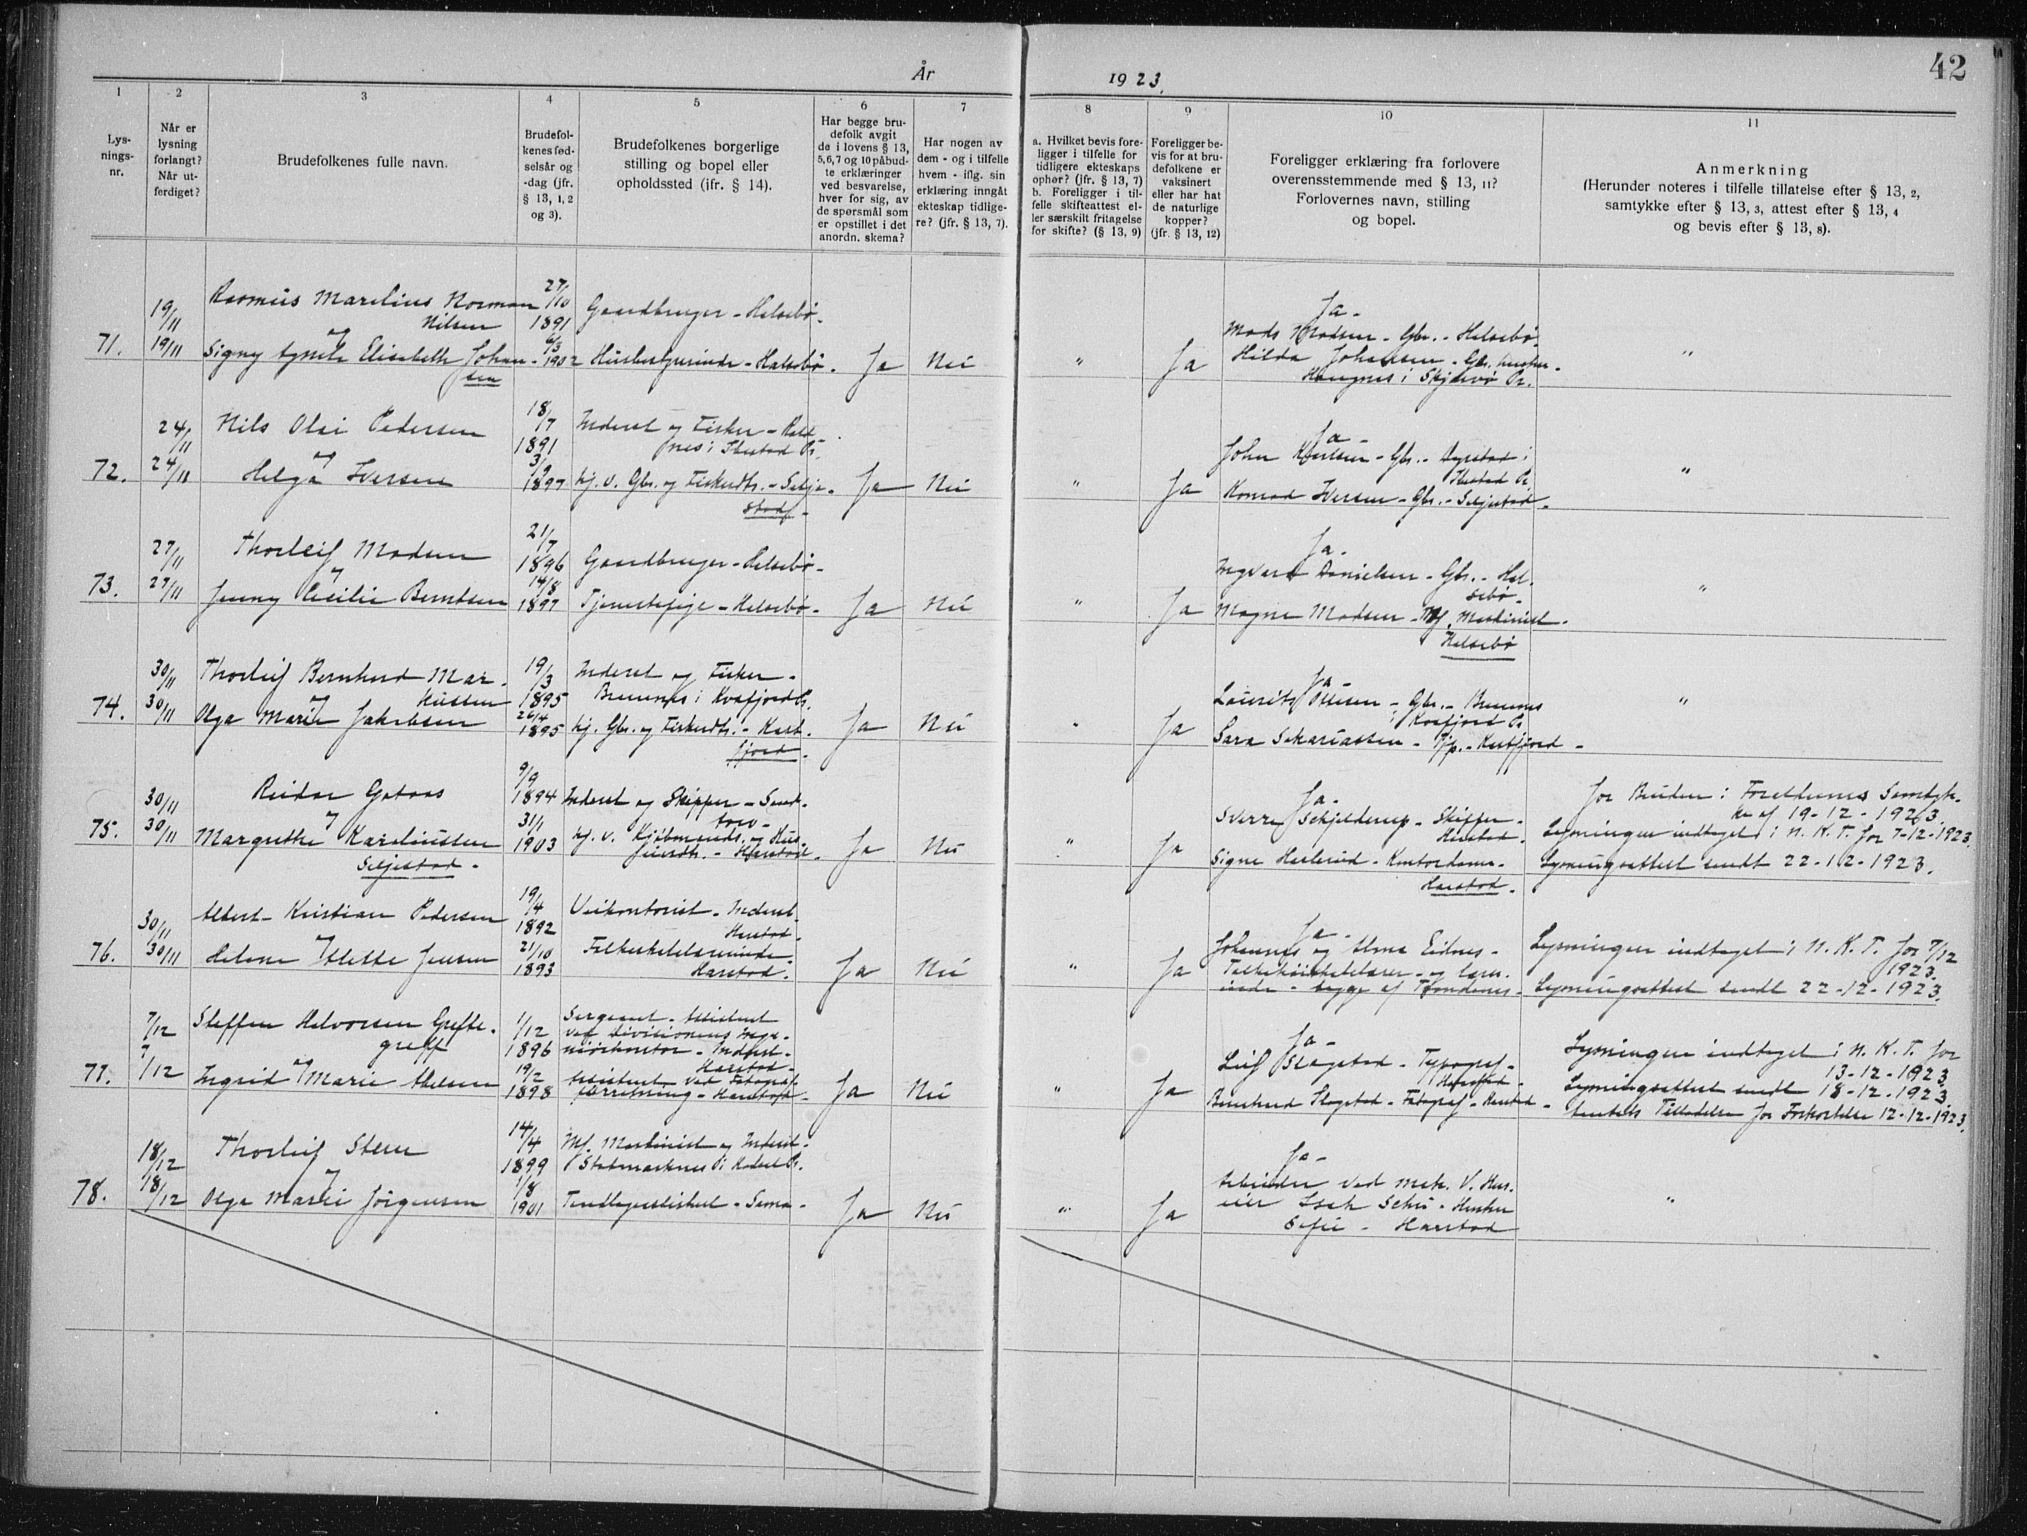 42
År 1923.
1 2 3 4 5 6 7 8 9 10 11
Lys-
nings-
nr.
Når er
lysning
forlangt?
Når ut-
ferdiget?
Brudefolkenes fulle navn.
Brudefol-
kenes fød-
selsår og
-dag (jfr.
§ 13, 1, 2
og 3).
Brudefolkenes borgerlige
stilling og bopel eller
opholdssted (jfr. § 14).
Har begge bru-
defolk avgit
de i lovens § 13,
5,6,7 og 10 påbud-
te erklæringer
ved besvarelse,
hver for sig, av
de spørsmål som
er opstillet i det
anordn. skema?
Har nogen av
dem - og i tilfelle
hvem - iflg. sin
erklæring inngått
ekteskap tidlige-
re? (jfr. § 13, 7).
a. Hvilket bevis fore-
ligger i tilfelle for
tidligere ekteskaps
ophør? (jfr. § 13, 7)
b. Foreligger i til-
felle skifteattest el-
ler særskilt fritagelse
for skifte? (§ 13, 9)
Foreligger be-
vis for at bru-
defolkene er
vaksinert
eller har hat
de naturlige
kopper?
(jfr. § 13, 12)
Foreligger erklæring fra forlovere
overensstemmende med § 13, 11?
Forlovernes navn, stilling
og bopel.
Anmerkning
(Herunder noteres i tilfelle tillatelse efter § 13, 2,
samtykke efter § 13, 3, attest efter § 13, 4
og bevis efter § 13, 8).
71.
19/11
19/11
Rasmus Marelius Norman
Nilsen
og
Signy Elisabeth Johan-
sen
27/10
1891
6/3
1902
Gaardbruger - Halsebø.
Husbestyrerinde - Halsebø.
Ja
Nei
"
Ja
Ja -
Mads Madsen - Gbr. - Halsebø.
Hilda Johansen - Gbr.
i Skjærvø Pr.
"
72.
24/11
24/11
Nils Olai Pedersen
og
Helga Iversen
18/7
1891
3/9
1897
Inderst og Fisker -
i Ibestad Pr.
hj. v. Gbr. og Fiskerdtr. - Selje-
stad -
Ja
Nei
"
Ja
Ja -
John - Gbr. - Dyrstad i
Ibestad Pr.
Konrad Iversen - Gbr. - Seljestad -
"
73.
27/11
27/11
Thorleif Madsen
og
Jenny Cecilie Berntsen
21/7
1896
14/8
1897
Gaardbruger - Halsebø -
Tjenestepige - Halsebø -
Ja
Nei
"
Ja
Ja -
Ingvart Danielsen - Gbr. - Hal-
sebø -
Magne Madsen - Mf. Maskinist -
Halsebø
"
74.
30/11
30/11
Thorleif Bernhard Mar-
kussen
og
Olga Marie Jakobsen
19/3
1895
26/4
1895
Inderst og Fisker -
Bremnes i Kvæfjord Pr.
hj. Gbr. og Fiskerdtr. - Kast-
fjord -
Ja
Nei
"
Ja
Ja -
Laurits Olsen - Gbr. - Bremnes
i Kvæfjord Pr.
Sara Sakariassen - Tjp. - Kastfjord -
"
75.
30/11
30/11
Reidar Gotaas
og
Margrethe Kareliussen
Seljestad -
9/9
1894
31/1
1903
Inderst og Skipper - Sand-
torv -
hj. v. Kjøbmands. og Hus-
eierdtr. - Harstad.
Ja
Nei
"
Ja
Ja -
Sverre Schjelderup - Skipper -
Harstad -
Signe - Kontordame -
Harstad -
for Bruden: Forældrenes Samtyk-
ke af 19-12-1923.
Lysningen indtaget i N. K. T. for 7-12-1923.
Lysningsattest sendt 22-12-1923.
76.
30/11
30/11
Albert Kristian Pedersen
og
Helene Jensen
19/4
1892
21/10
1893
Inderst -
Harstad -
Folkeskolelærerinde -
Harstad -
Ja
Nei
"
Ja
Ja -
Johannes og Alma Eidnes -
og lærer-
inde - begge af Trondenes -
Lysningen indtaget i N. K. T. for 7/12
1923.
Lysningsattest sendt 22-12-1923.
77.
7/12
7/12
Steffen Halvorsen Grefte-
greff
og
Ingrid Marie
1/12
1896
19/2
1898
Sergeant - Assistent
ved Divisionens Inge-
niørkontor - Inderst -
Harstad -
Assistent ved Fotograf-
forretning - Harstad -
Ja
Nei
"
Ja
Ja -
Leif Slagstad - Typograf -
Harstad -
Bernhard Slagstad - Fotograf - Harstad -
Lysningen indtaget i N. K. T. for
13-12-1923
Lysningsattest sendt 18-12-1923
Amtets Tilladelse for Forkortelse 12-12-1923.
78.
18/12
18/12
Thorleif Steen
og
Olga Marie Jørgensen
14/4
1899
1/8
1901
Mf. Maskinist og Inderst -
Stokmarknes i Hadsel Pr.
Tandlægeassistent - Sama -
Ja
Nei
"
Ja
Ja -
Arbeider ved mek. V. Hus-
eier Isak - Hustru
Sofie - Harstad
"